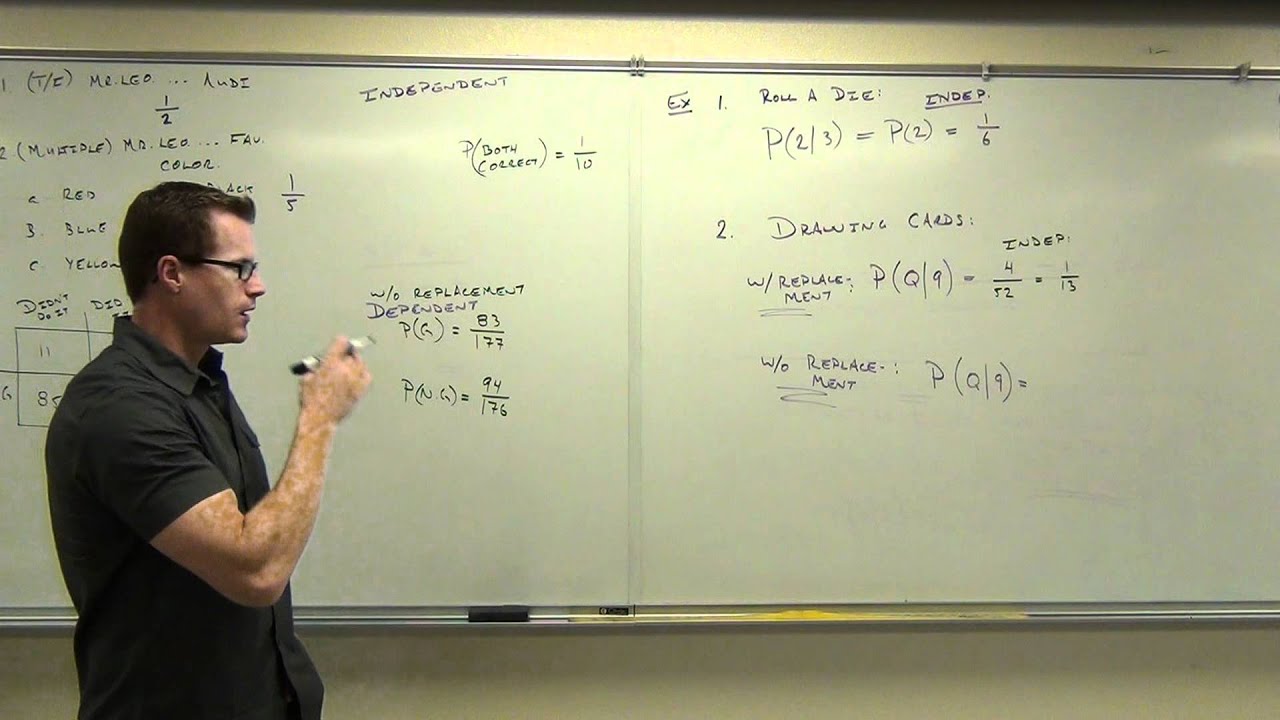 1 (T/F) MR. LEO ... AUDI
1/2
2 (MULTIPLE) MR. LEO ... FAV.
COLOR.
a. RED
1/5
B. BLUE
C. YELLOW
DIDN'T DO IT
DID
11
G
INDEPENDENT
P(BOTH CORRECT) = 1/10
W/O REPLACEMENT
DEPENDENT
P(G) = 83/177
P(N.G) = 94/176
EX 1. ROLL A DIE: INDEP.
P(2|3) = P(2) = 1/6
2. DRAWING CARDS:
INDEP:
W/ REPLACE- P(Q|9) = 4/52 = 1/13
MENT:
W/O REPLACE- : P(Q|9) =
MENT